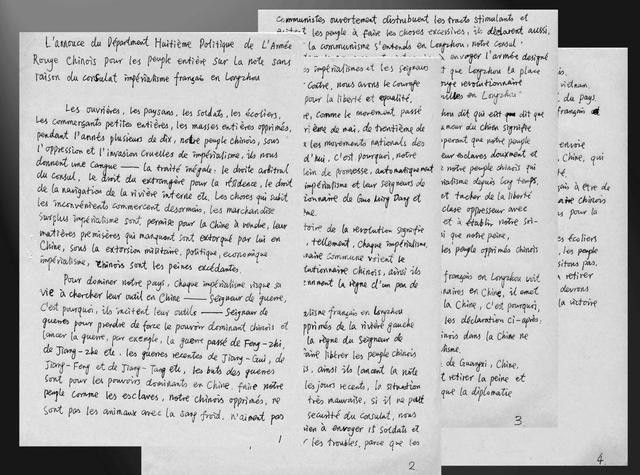 L'annouce du Départment Huitième Politique de L'Armée
Rouge Chinois pour les peuple entière sur la note sans
raison du consulat impérialisme français en Longzhou
Les ouvrières, les paysans, les soldats, les écoliers,
Les commerçants petites entières, les masses entières opprimés,
pendant l'années plusieurs de dix, notre peuple chinois, sous
l'oppression et l'invasion cruelles de impérialisme, ils nous
donnent une cangue —— la traité inégale: le droit arbitral
du consul, le droit du extrangère pour la résidence, le droit
de la navigation de la rivière interne etc. Les choses qui subit
les inconvénients commercent désormais, les marchandise
surplus impérialisme sont permise pour la Chine à vendre, leur
matières premières qui manquent sont extorqué par lui en
Chine, sous la extorsion militaire, politique, économique
impérialisme, chinois sont les peines excédantes.
Pour dominer notre pays, chaque impérialisme risque sa
vie à chercher leur outil en Chine —— Seigneur de guerre,
C'est pourquoi, ils incitent leur outils —— Seigneur de
guerres pour prendre de force le pouvoir dominant chinois et
lancer la guerre, par exemple, la guerre passé de Feng-zhi,
de Jiang-zhe etc. les guerres récentes de Jiang-Gui, de
Jiang-Feng et de Jiang-Tang etc, les buts des guerres
sont pour les pouvoirs dominants en Chine, faire notre
peuple comme les esclaves, notre chinois opprimés, ne
sont pas les animaux avec la sang froid, n'aiment pas
1
impérialismes et les seigneurs
nous avons le courage
pour la liberté et equalité,
comme le movement passé
de mai, de trentième de
les movements nationals des
d'hui, C'est pourquoi, notre
de promesse, automatiquement
impérialisme et leur seigneurs de
de Guo Ming Dang et
de la revolution signifie
tellement, chaque impérialisme,
commune voient le
chinois, ainsi ils
la règne d'un peu de
français en Longzhou
opprimés de la rivière gauche
la règne du Seigneur de
libérer les peuple chinois
ainsi ils lancent la note
les jours recents, la situation
très mauvaise, si il ne peut
securité du consulat, nous
à envoyer 15 soldats et
les troubles, parce que les
2
communistes ouvertement distribuent les tracts stimulants et
les peuple à faire les choses excessives, ils déclarent aussi,
la communisme s'entends en Longzhou, notre consul
envoyer l'armée designé
que Longzhou la place
rouge revolutionnaire
en Longzhou"
dit qui eût que dit que
du chien signifie
que notre peuple
esclaves doucment et
notre peuple chinois qui
depuis long temps,
et tacher de la liberté
clase oppresseur avec
et à établir notre
que notre peine,
les peuple opprimés chinois
français en Longzhou voit
en Chine, il emet
la Chine, C'est pourquoi,
les déclaration ci-après:
dans la Chine ne
de Guangxi, Chine.
retirer la peine et
que la diplomatie
3
vietnam.
du pays.
français
envoie
Chine, qui
à être de
chinois
pour la
écoliers
les peuple
pas,
retirer
devrons
la victoire
4